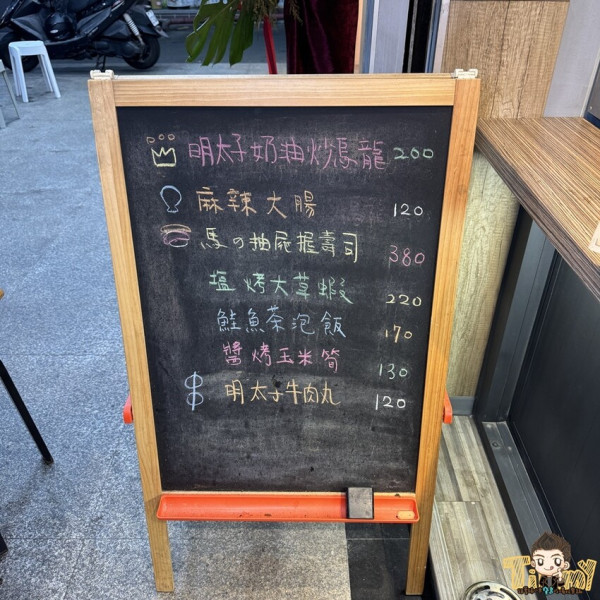 明太子奶油炒烏龍 200
麻辣大腸 120
馬の抽屍握壽司 380
塩烤大草蝦 220
鮭魚茶泡飯 170
醬烤玉米筍 130
明太子牛肉丸 120